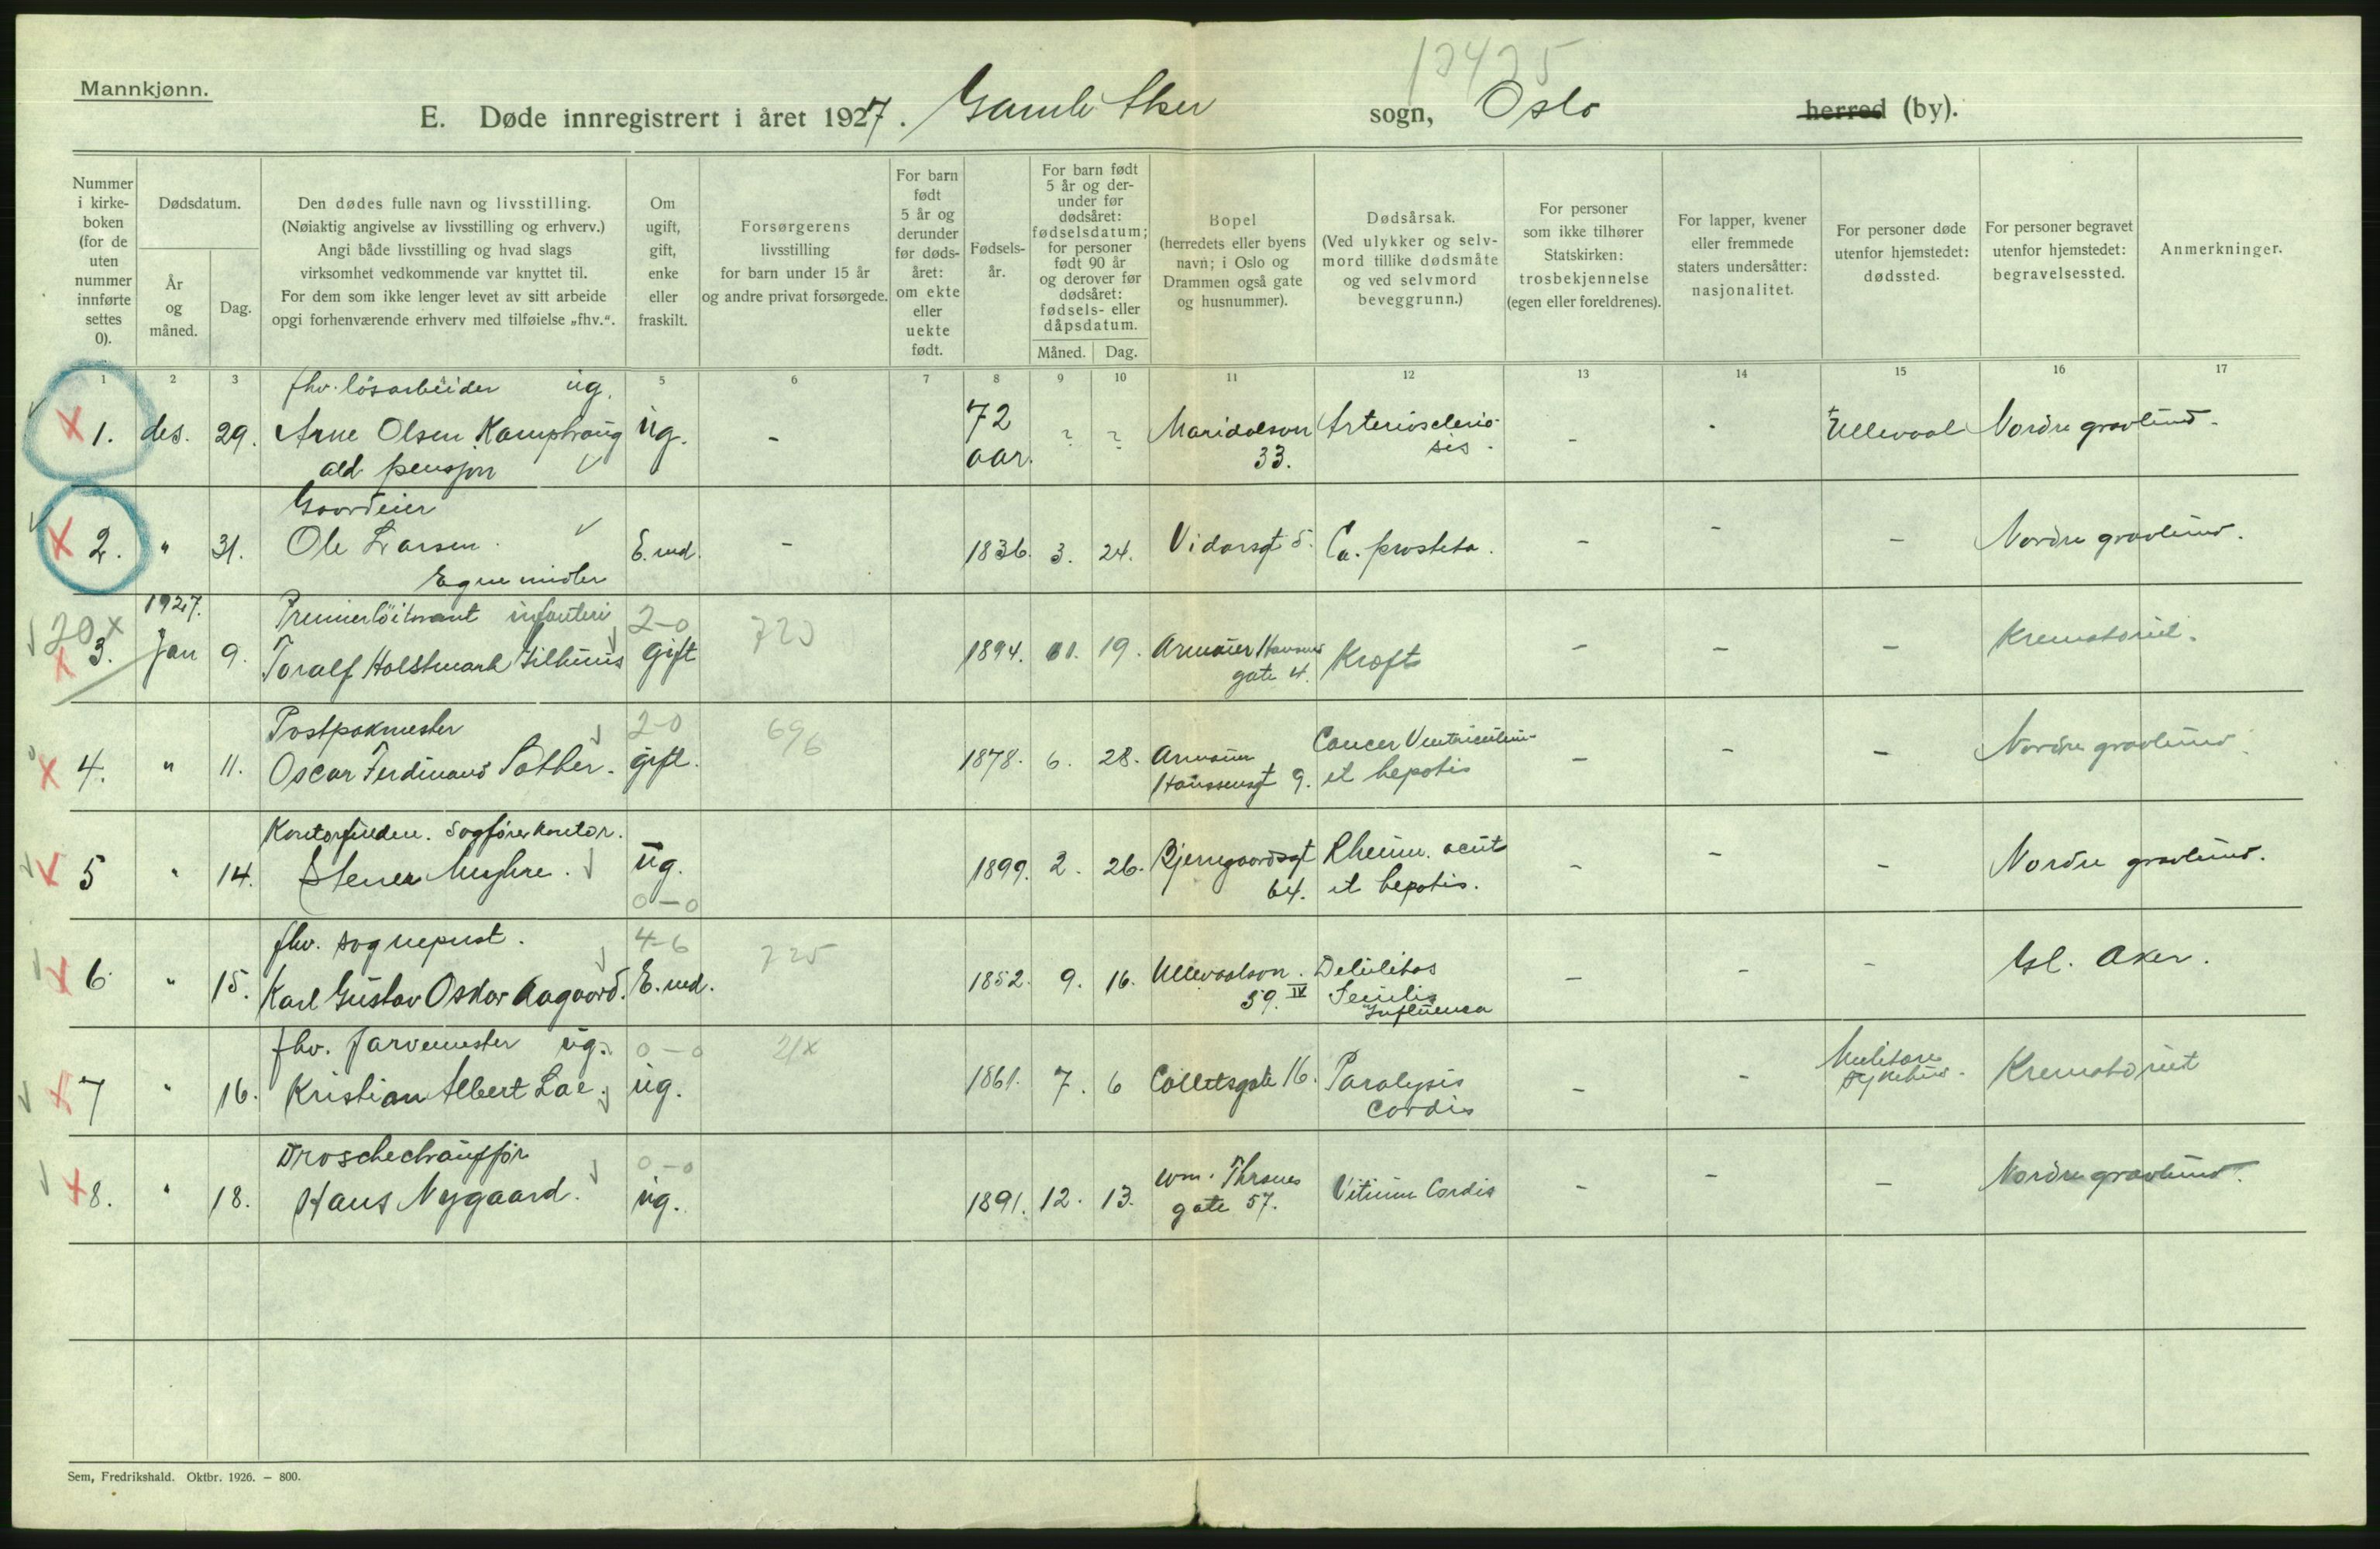 12425
Mannkjønn.
E. Døde innregistrert i året 1927. Gamle Aker sogn, Oslo herred (by).
Nummer i kirkeboken (for de uten nummer innførte settes 0).
Dødsdatum.
År og måned.
Dag.
Den dødes fulle navn og livsstilling.
(Nøiaktig angivelse av livsstilling og erhverv.)
Angi både livsstilling og hvad slags
virksomhet vedkommende var knyttet til.
For dem som ikke lenger levet av sitt arbeide
opgi forhenværende erhverv med tilføielse „fhv.“.
Om ugift, gift, enke eller fraskilt.
Forsørgerens
livsstilling
for barn under 15 år
og andre privat forsørgede.
For barn født 5 år og derunder før dødsåret: om ekte eller uekte født.
Fødselsår.
For barn født 5 år og derunder før dødsåret: fødselsdatum; for personer født 90 år og derover før dødsåret: fødsels- eller dåpsdatum.
Måned. Dag.
Bopel
(herredets eller byens
navn; i Oslo og
Drammen også gate
og husnummer).
Dødsårsak.
(Ved ulykker og selvmord tillike dødsmåte
og ved selvmord
beveggrunn.)
For personer
som ikke tilhører
Statskirken:
trosbekjennelse
(egen eller foreldrenes).
For lapper, kvener
eller fremmede
staters undersåtter:
nasjonalitet.
For personer døde
utenfor hjemstedet:
dødssted.
For personer begravet
utenfor hjemstedet:
begravelsessted.
Anmerkninger.
1 2 3 5 6 7 8 9 10 11 12 13 14 15 16 17
fhv. løsarbeider ug.
1. des. 29. Arne Olsen Kamphaug ug. - 72 aar. ? ? Maridalsvn 33. Arteriosclerosis. - - Ullevaal Nordre gravlund.
ald pensjon
Gaardeier
2. " 31. Ole Larsen. E.md. - 1836. 3. 24. Vidarsgt 5. Ca. prostata. - - - Nordre gravlund.
Egne midler
1927. Premierløitnant infanteri 2-0 720
20x
3. Jan 9. Toralf Holstmark gift 1894. 11. 19. Armauer Hansens gate 4. Kræft - - - Krematoriet.
Postpakmester 2-0 696
4. " 11. Oscar Ferdinand Sæther. gift. 1878. 6. 28. Armauer Hanssensgt 9. Cancer Ventriculi et hepatis - - - Nordre gravlund.
Kontorfuldm. Sagførerkontor.
5 " 14. Stener Myhre. ug. 1899. 2. 26. Bjerregaardsgt 64. Rheum. acut et hepatis. - - - Nordre gravlund.
0-0
fhv. sogneprest. 4-6 725
6 " 15. Karl Gustav Oskar Aagaard. E.md. 1852. 9. 16. Ullevaalsvn. 59. IV Debilitas Senilis Influensa - - - Gl. Aker.
fhv. farvemester ug. 0-0 21x
7 " 16. Kristian Albert Lae. ug. 1861. 7. 6 Colletsgate 16. Paralysis Cordis - - Militære sykehus. Krematoriet
Droschechauffør 0-0
8. " 18. Hans Nygaard. ug. 1891. 12. 13. Wm. Thranes gate 57. Vitium Cordis - - - Nordre gravlund.
Sem, Fredrikshald. Oktbr. 1926. — 800.